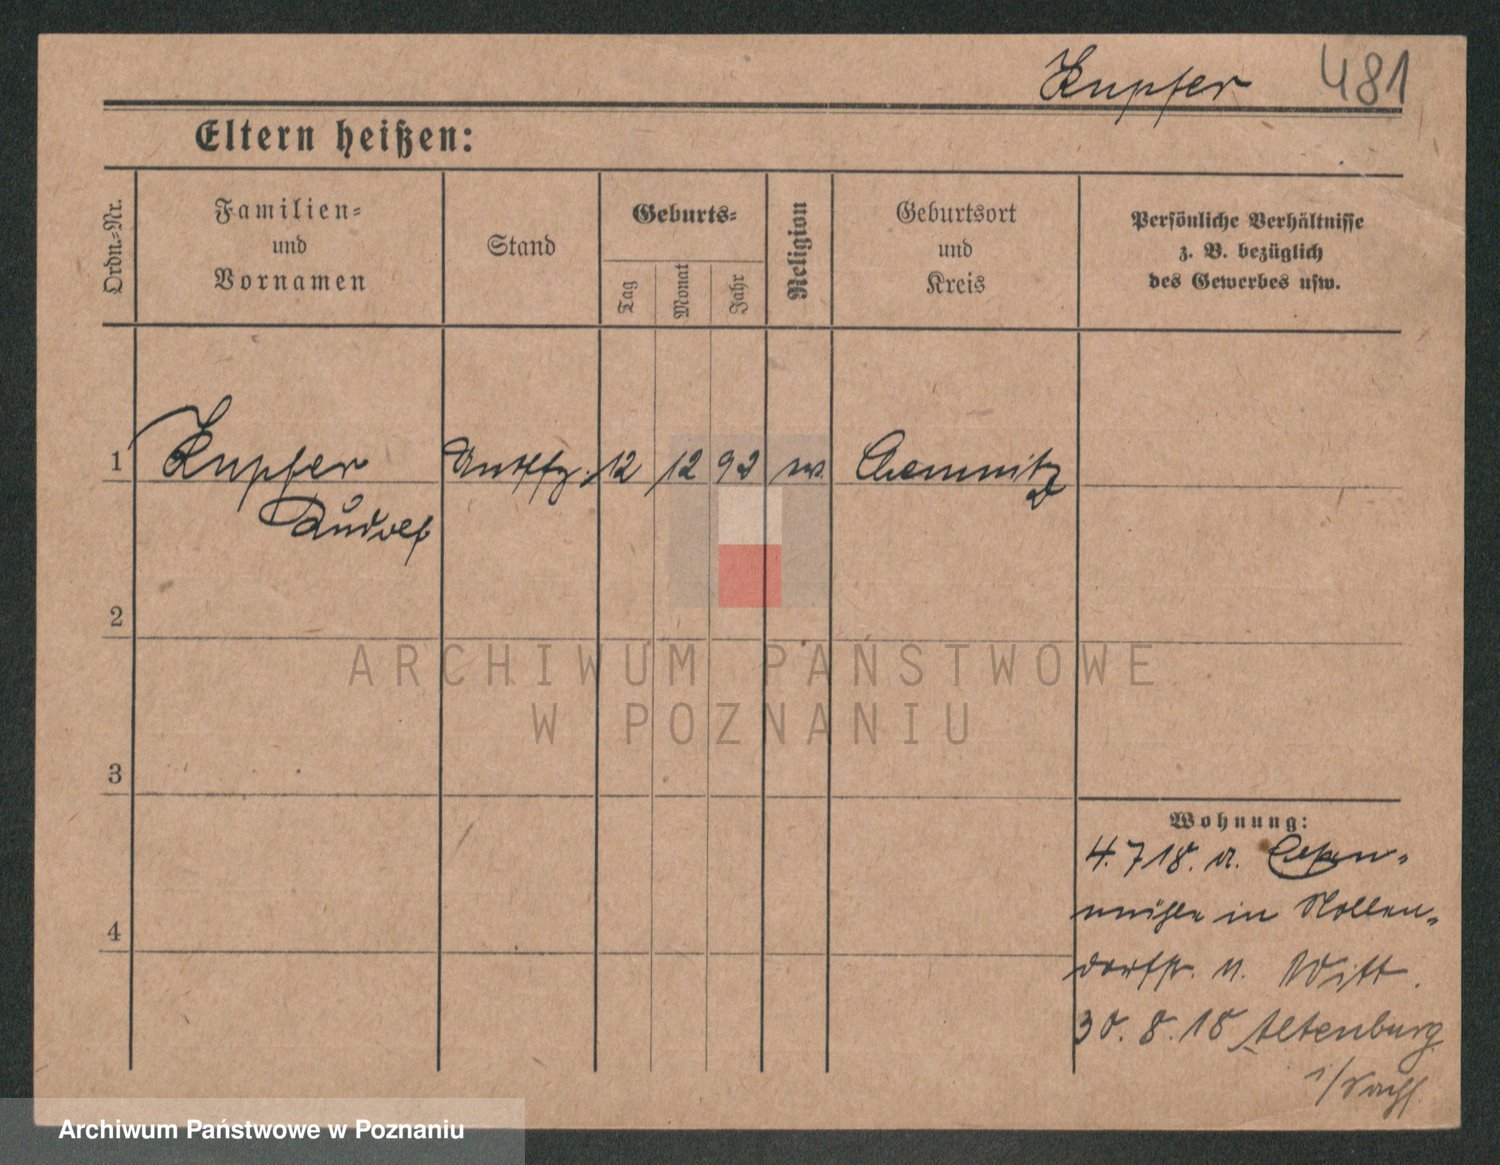 Kupfer 481
Eltern heißen:
Ordn.=Nr.
Familien=
und
Vornamen
Stand
Geburts=
Tag
Monat
Jahr
Religion
Geburtsort
und
Kreis
Persönliche Verhältnisse
z. B. bezüglich
des Gewerbes usw.
1 Kupfer 12 12 92 Chemnitz
Rudolf
2
ARCHIWUM PAŃSTWOWE
W POZNANIU
3
4
Wohnung:
4. 7 18. a.
mühle in Nollen=
dorfstr. n. Witt.
30. 8. 18 Altenburg
i/Sachs.
Archiwum Państwowe w Poznaniu